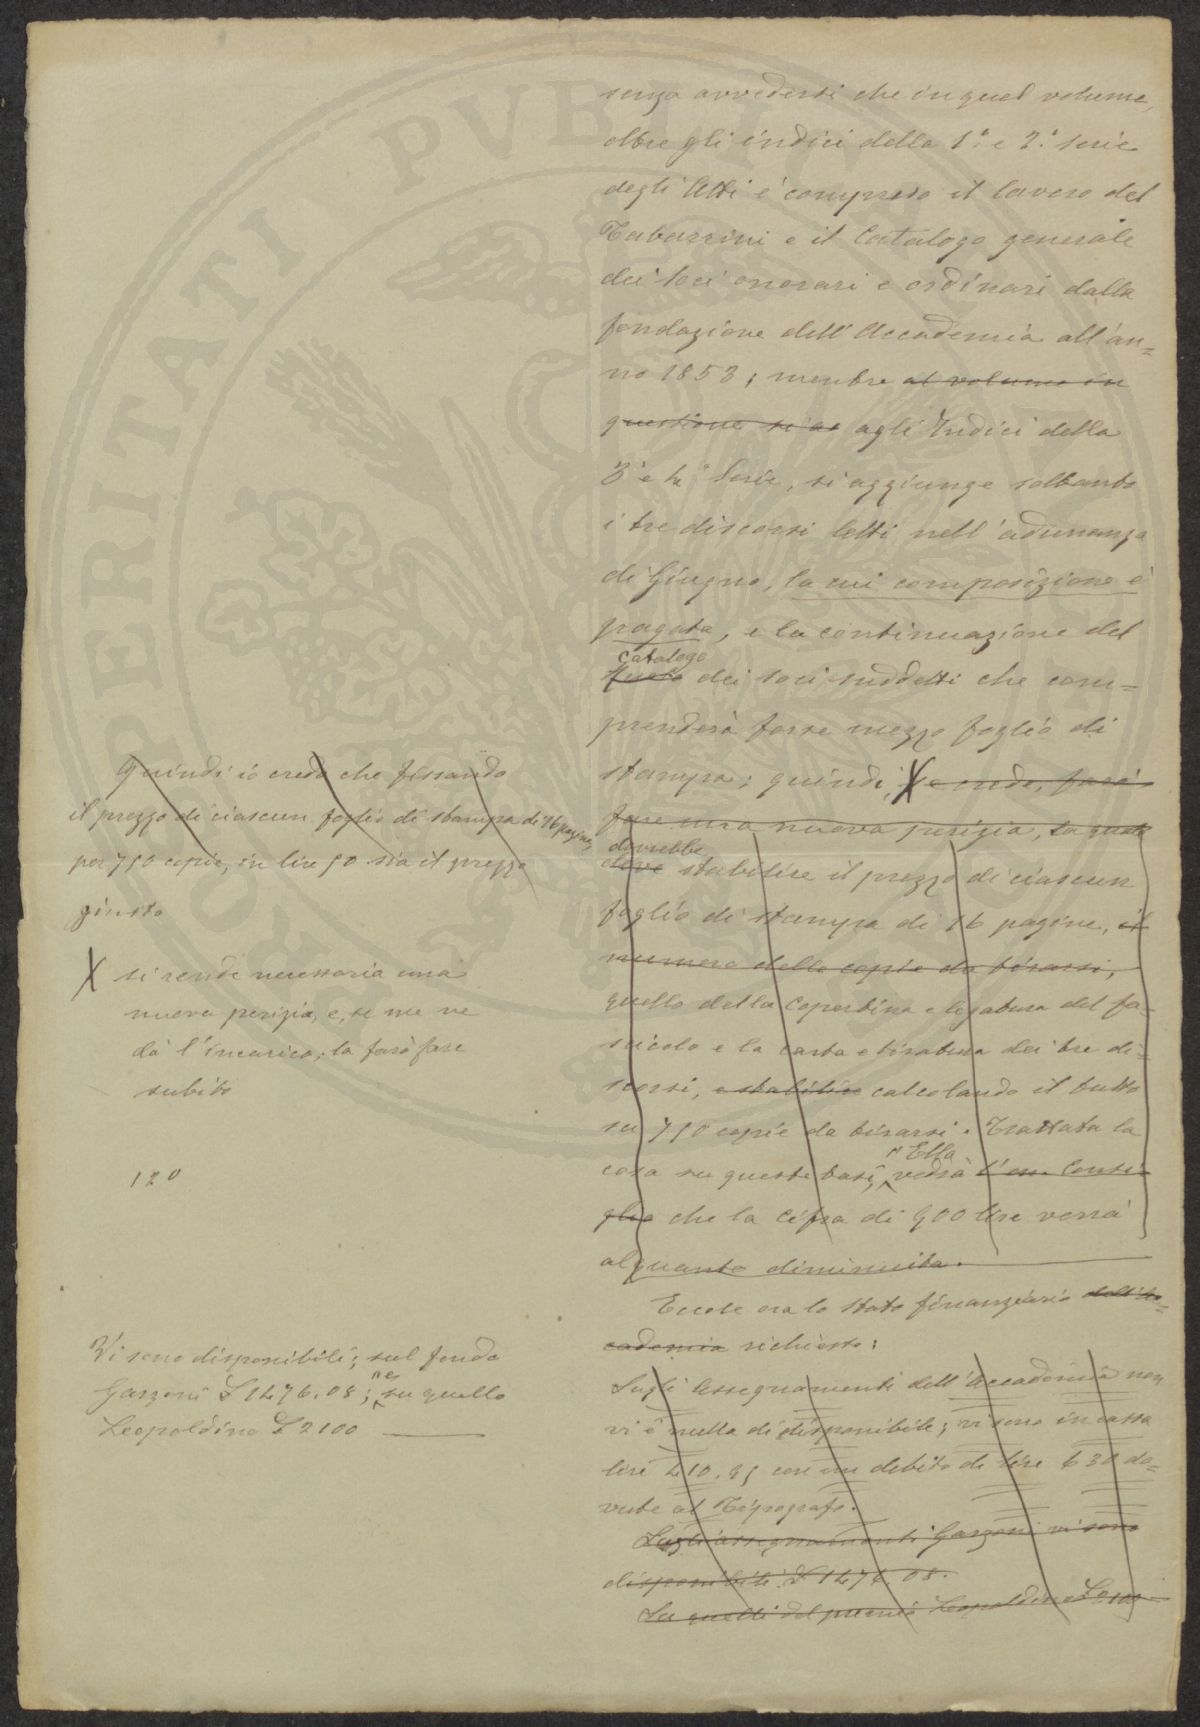 senza avvedersi che in quel volume,
oltre gli indici della 1ª e 2ª serie
degli Atti è compreso il lavoro del
Tabarrini e il Catalogo generale
dei soci onorari e ordinari dalla
fondazione dell'Accademia all'an=
no 1853; mentre al volume in
questione si ag agli Indici della
3ª e 4ª Serie, si aggiunge soltanto
i tre discorsi letti nell'adunanza
di Giugno, la cui composizione è
pagata, e la continuazione del
catalogo
dei soci suddetti che com=
prenderà forse mezzo foglio di
stampa; quindi, X se crede, farò
fare una nuova perizia, la quale
dovrebbe
deve stabilire il prezzo di ciascun
foglio di stampa di 16 pagine, il
numero delle copie da tirarsi,
quello della Copertina e legatura del fa=
scicolo e la carta e tiratura dei tre di=
scorsi, e stabilire calcolando il tutto
su 750 copie da tirarsi. Trattata la
Ella
cosa su queste basi, vedrà l'on. Consi=
glio che la cifra di 900 lire verrà
alquanto diminuita.
Eccole ora lo stato finanziario dell'Ac=
cademia richiesto:
Sugli Assegnamenti dell'Accademia non
vi è nulla di disponibile; vi sono in cassa
lire 410.95 con un debito di lire 630 do=
vute al Tipografo.
Sugli assegnamenti Garzoni vi sono
disponibili £ 1476.08.
Su quelli del premio Leopoldino £ 2100
Quindi io credo che fissando
il prezzo di ciascun foglio di stampa di 16 pagine,
per 750 copie, in lire 50 sia il prezzo
giusto
X si rende necessaria una
nuova perizia, e, se me ne
dà l'incarico, la farò fare
subito
120
Vi sono disponibili; sul fondo
Garzoni £ 1476.08; e su quello
Leopoldino £ 2100
PERITATI PVBLICA